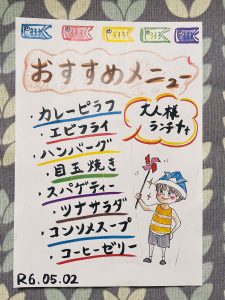 おすすめメニュー
大人様
ランチ
・カレーピラフ
・エビフライ
・ハンバーグ
・目玉焼き
・スパゲティー
・ツナサラダ
・コンソメスープ
・コーヒーゼリー
R6.05.02